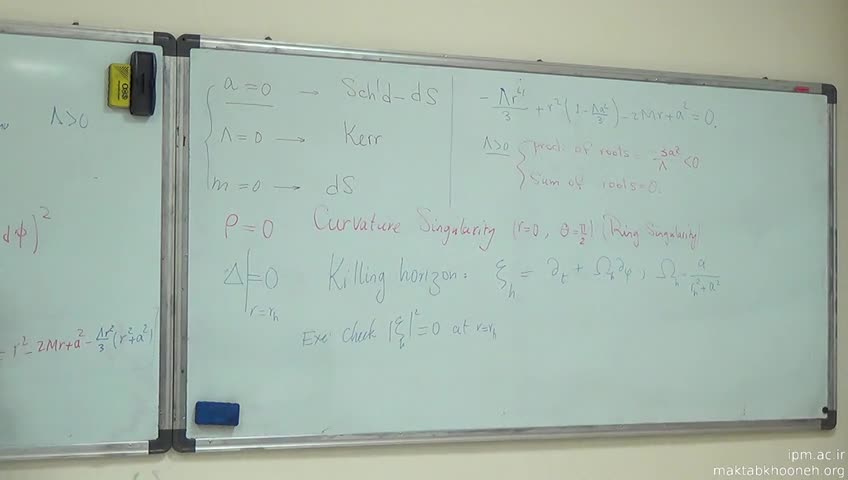 Λ>0
dφ)²
r²-2Mr+a²-Λr²/3(r²+a²)
a=0 → Sch'd-dS
Λ=0 → Kerr
m=0 → dS
-Λr⁴/3+r²(1-Λa²/3)-2Mr+a²=0.
Λ>0 { prod. of roots = -3a²/Λ<0
Sum of roots=0.
ρ=0 Curvature Singularity (r=0, θ=π/2) (Ring Singularity)
Δ|r=r_h=0 Killing horizon: ξ_h = ∂_t + Ω_h∂_φ, Ω_h=a/(r_h²+a²)
Exe: check |ξ_h|²=0 at r=r_h
ipm.ac.ir
maktabkhooneh.org